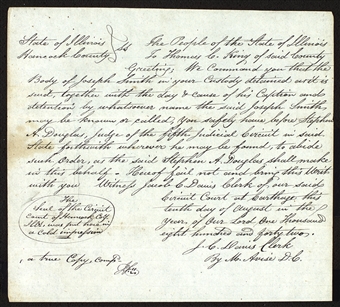 State of Illinois } ss The People of the State of Illinois
Hancock County } To Thomas C. King of said County
Greeting; We Command you that the
Body of Joseph Smith in your Custody detained as it is
said, together with the day & cause of his Caption and
detention by whatsoever name the said Joseph Smith
may be known or called, you safely have before Stephen
A. Douglas, judge of the fifth judicial Circuit in said
State forthwith wherever he may be found, to abide
such Order, as the said Stephen A. Douglas shall make
in this behalf. Hereof fail not and bring this Writ
with you Witness Jacob C. Davis Clerk of our said
The
Seal of the Circuit
Court of Hancock Coy.
Ills. was put here in
a cold impression
Circuit Court at Carthage, this
tenth day of August in the
Year of our Lord One Thousand
eight hundred and forty two.
J. C. Davis Clerk
By M. Avise D.C.
a true Copy,